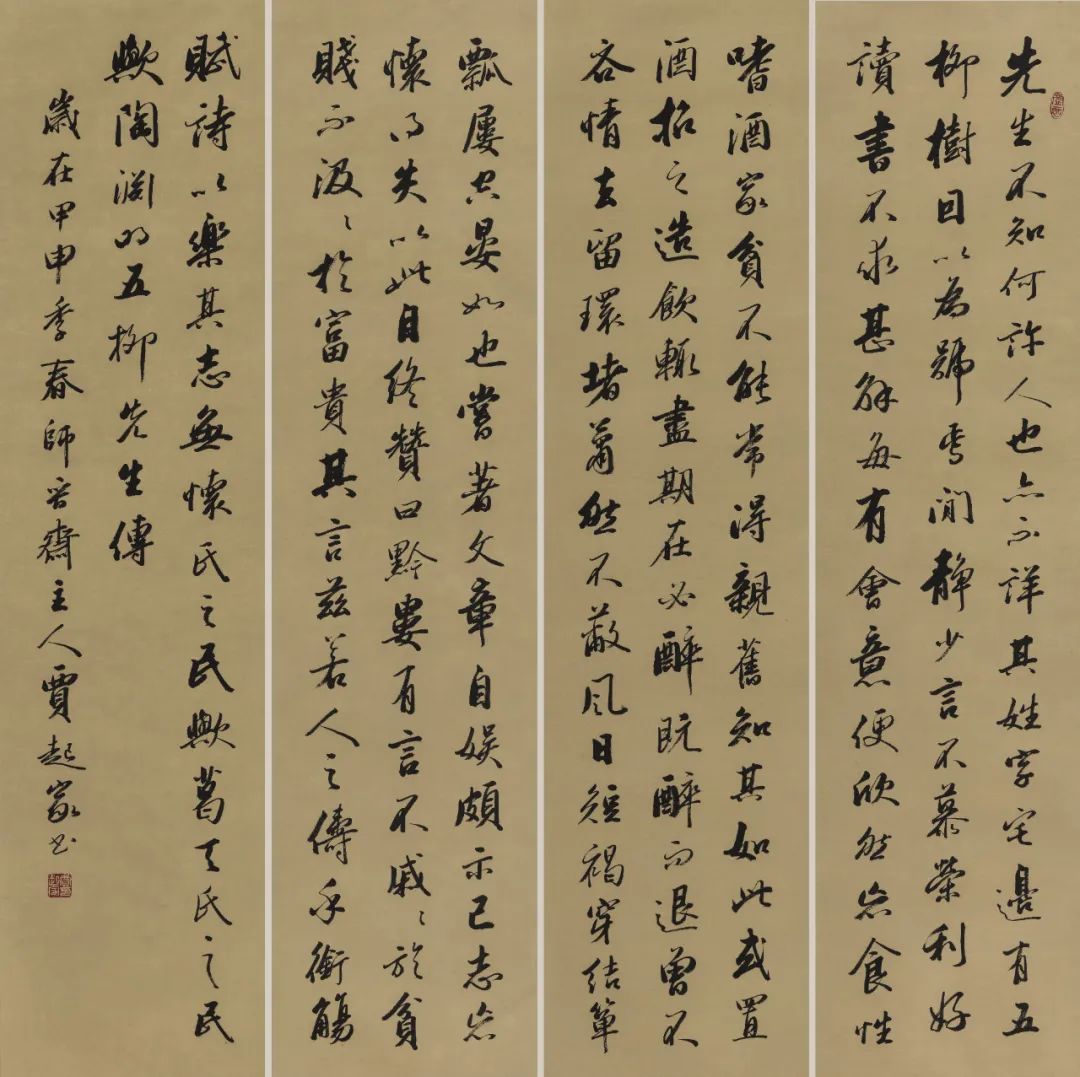 先生不知何許人也亦不詳其姓字宅邊有五
柳樹因以為號焉閒静少言不慕榮利好
讀書不求甚解每有會意便欣然忘食性
嗜酒家貧不能常得親舊知其如此或置
酒招之造飲輒盡期在必醉既醉而退曾不
吝情去留環堵蕭然不蔽風日短褐穿結簞
瓢屢空晏如也嘗著文章自娱頗示己志忘
懷得失以此自終贊曰黔婁有言不戚〻於貧
賤不汲〻於富貴其言兹若人之儔乎銜觴
賦詩以樂其志無懷氏之民歟葛天氏之民
歟陶淵明五柳先生傳
歲在甲申季春師齋主人賈起家書